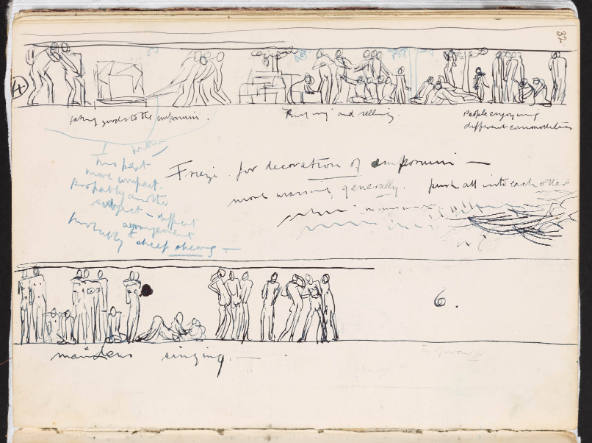 32
4
taking goods to the emporium.
Buying and selling
People enjoying
different commodities
I
this part
more compact.
Probably another
subject — different
arrangement
Probably sheep shearing —
Frieze for decoration of emporium —
more massing generally. push all into each other
6.
maidens singing. —